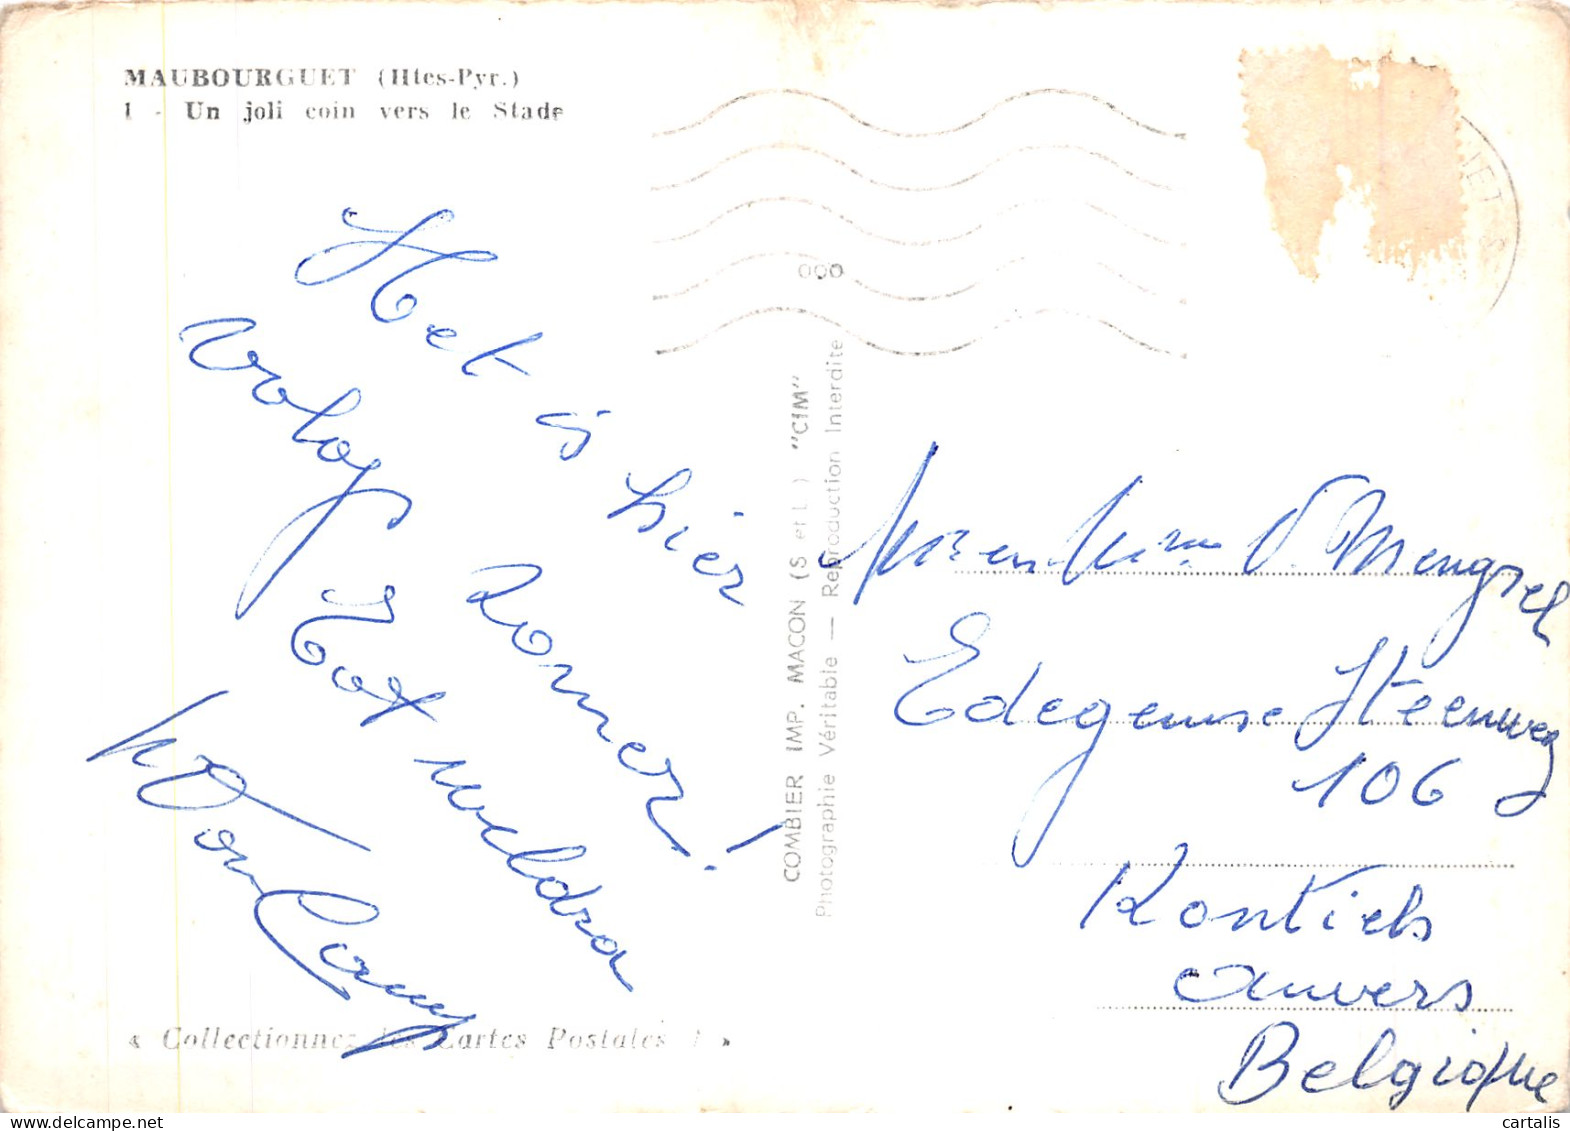 MAUBOURGUET (Htes-Pyr.)
1 - Un joli coin vers le Stade
Het is hier
volop zomer!
Tot weldra
000
COMBIER IMP. MACON (S et L) "CIM"
Photographie Véritable — Reproduction Interdite
Edegemse Steenweg
106
Kontich
Anvers
Belgique
« Collectionnez les Cartes Postales ! »
cartalis